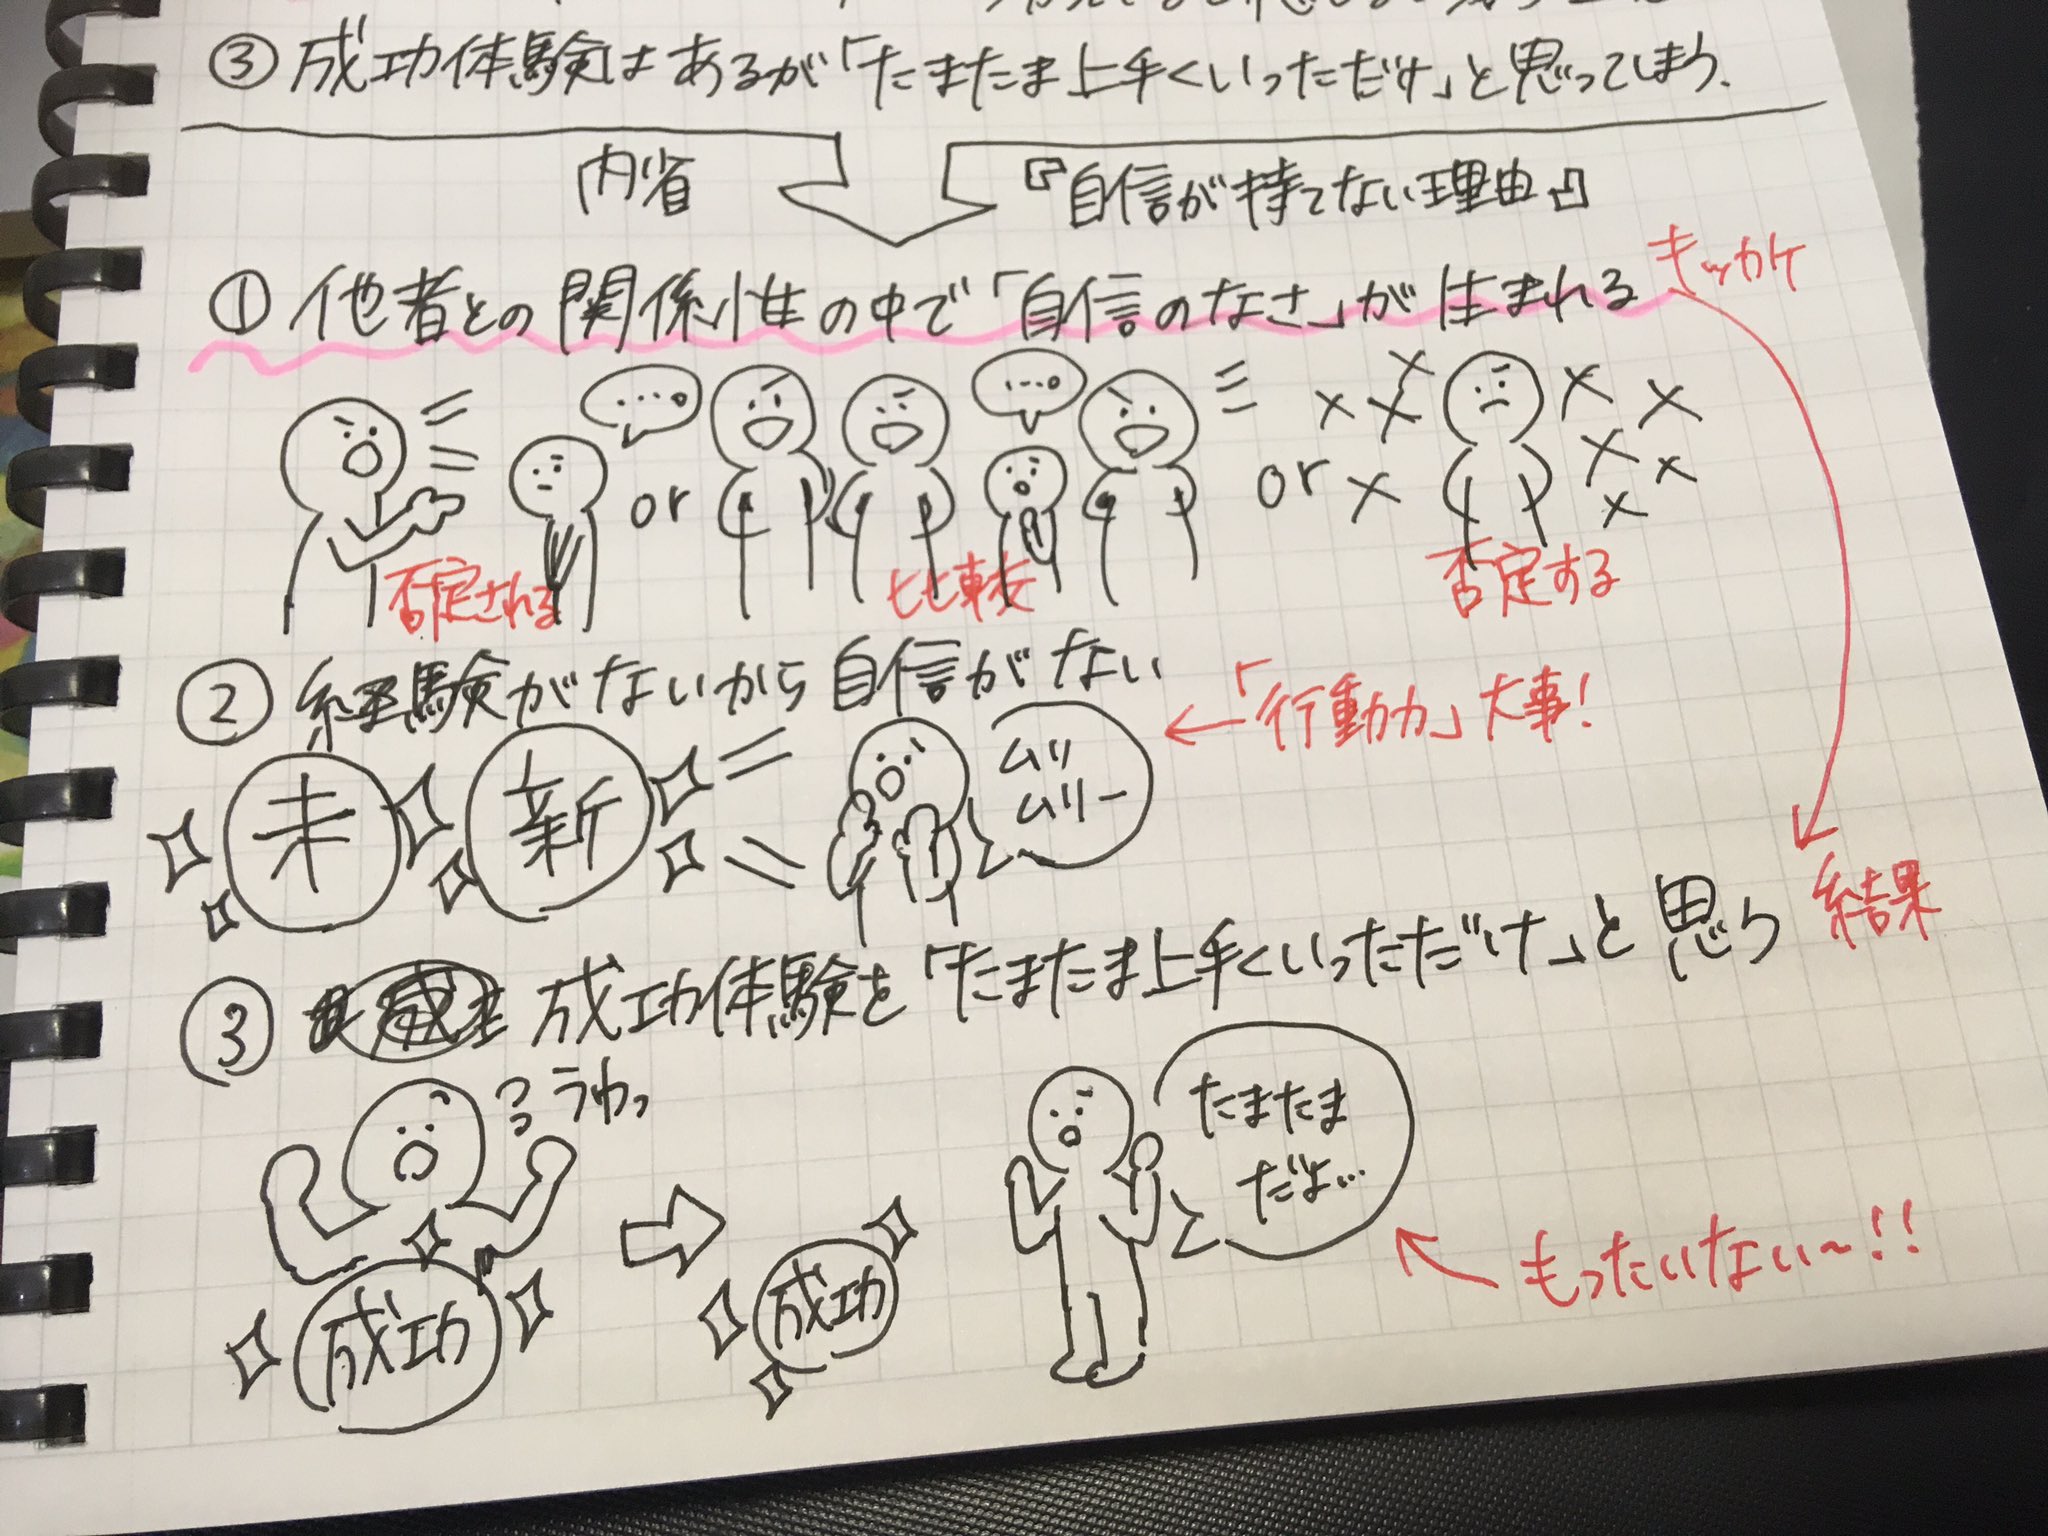 ③成功体験はあるが「たまたま上手くいっただけ」と思ってしまう.
内省 『自信が持てない理由』
①他者との関係性の中で「自信のなさ」が生まれる キッカケ
...。 ...。
or or
否定される 比較 否定する
②経験がないから自信がない
←「行動力」大事!
未 新 ムリ
ムリー
結果
③ 成功体験を「たまたま上手くいっただけ」と思う
うわっ
たまたま
だよ…
成功 成功
もったいない〜!!